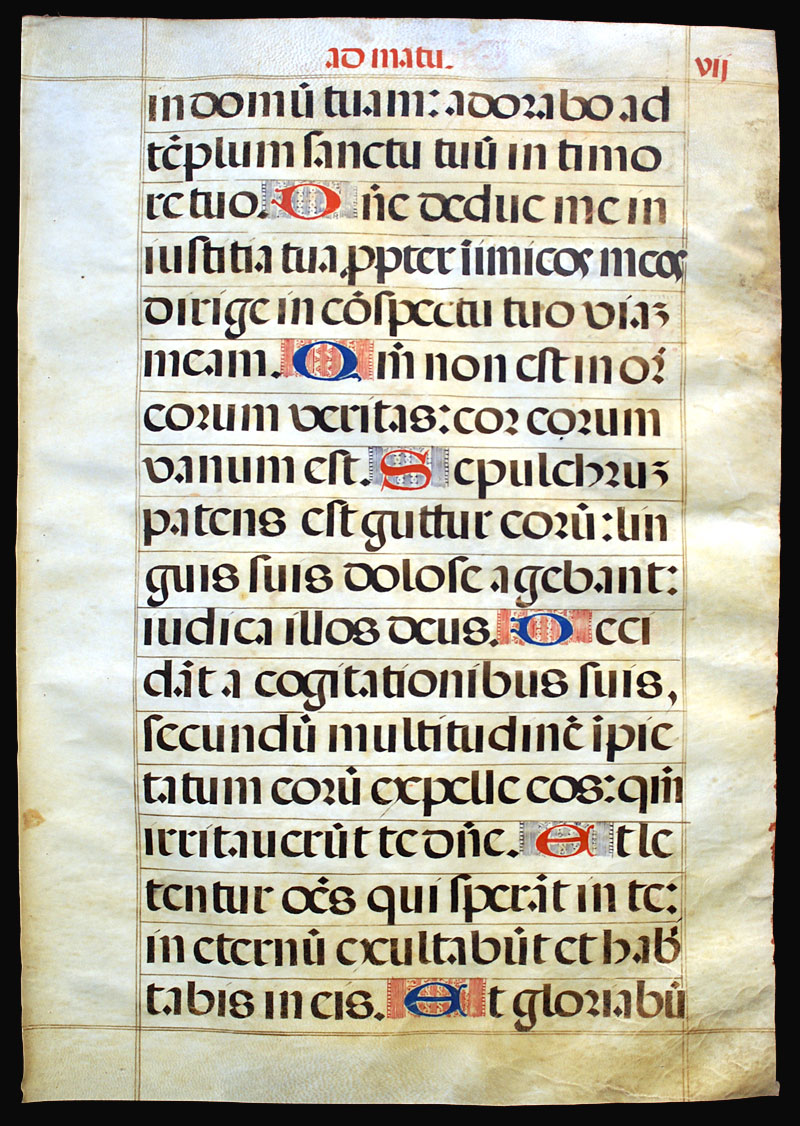 ad matu.
vij
in domū tuam: adorabo ad
tēplum sanctū tuū in timo
re tuo. Dn̄e deduc me in
iustitia tua ꝓpter iīmicos meos
dirige in cōspectu tuo viaꝫ
meam. Qm̄ non est in or̄
eorum veritas: cor eorum
vanum est. Sepulchruꝫ
patens est guttur eorū: lin
guis suis dolose agebant:
iudica illos deus. Deci
dāt a cogitationibus suis,
secundū multitudinē īpie
tatum eorū expelle eos: qm̄
irritauerūt te dn̄e. Et le
tentur oēs qui sperāt in te:
in eternū exultabūt et habi
tabis in eis. Et gloriabū